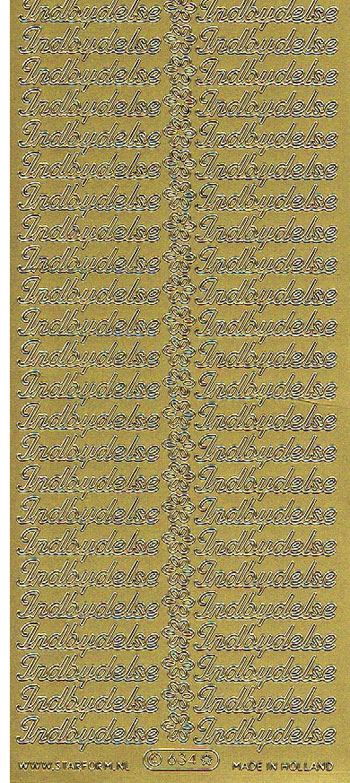 Indbydelse Indbydelse
Indbydelse Indbydelse
Indbydelse Indbydelse
Indbydelse Indbydelse
Indbydelse Indbydelse
Indbydelse Indbydelse
Indbydelse Indbydelse
Indbydelse Indbydelse
Indbydelse Indbydelse
Indbydelse Indbydelse
Indbydelse Indbydelse
Indbydelse Indbydelse
Indbydelse Indbydelse
Indbydelse Indbydelse
Indbydelse Indbydelse
Indbydelse Indbydelse
Indbydelse Indbydelse
Indbydelse Indbydelse
Indbydelse Indbydelse
Indbydelse Indbydelse
Indbydelse Indbydelse
Indbydelse Indbydelse
Indbydelse Indbydelse
Indbydelse Indbydelse
WWW.STARFORM.NL © 634 MADE IN HOLLAND